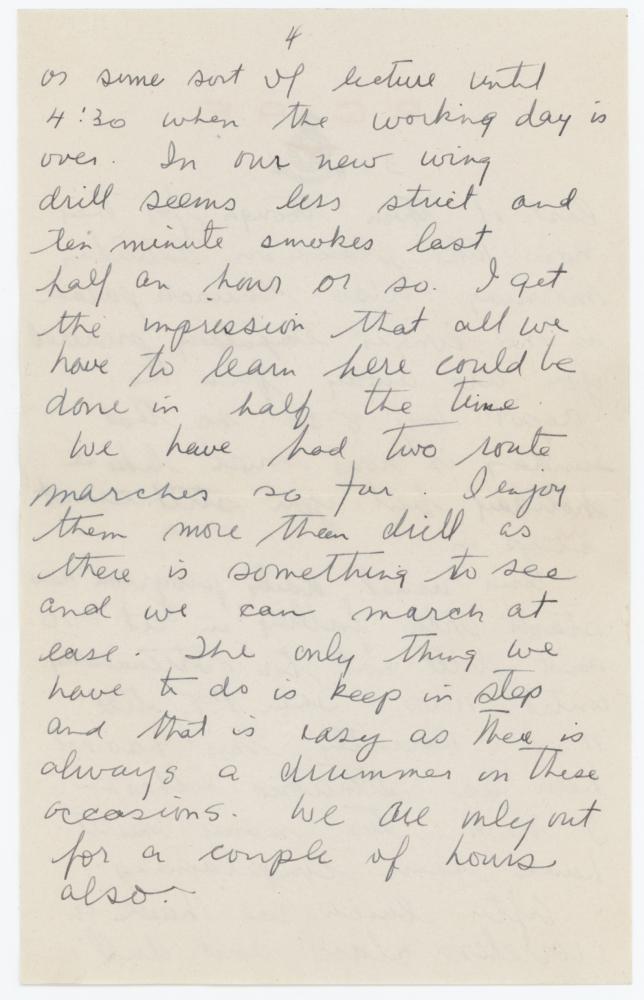 4
or some sort of lecture until
4:30 when the working day is
over. In our new wing
drill seems less strict and
ten minute smokes last
half an hour or so. I get
the impression that all we
have to learn here could be
done in half the time.
We have had two route
marches so far. I enjoy
them more than drill as
there is something to see
and we can march at
ease. The only thing we
have to do is keep in step
and that is easy as there is
always a drummer on these
occasions. We are only out
for a couple of hours
also.